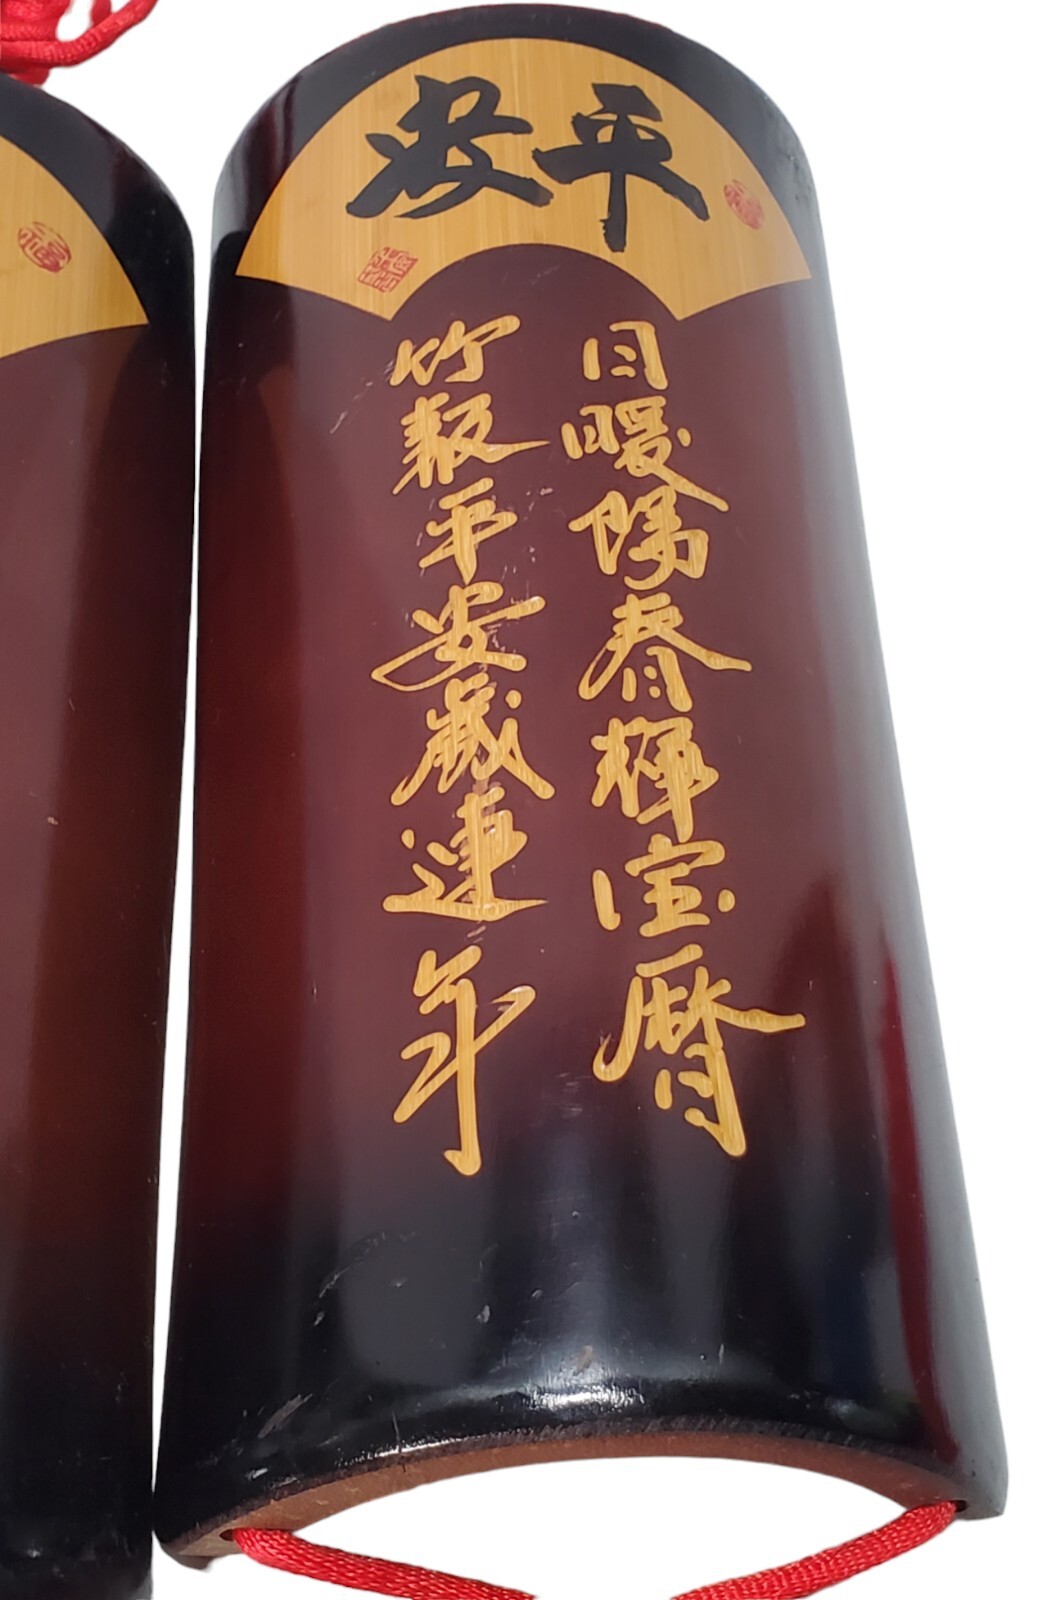 平安
日暖陽春輝宝曆
竹報平安歲連年